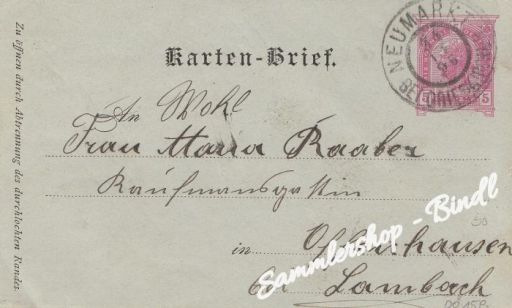 Karten-Brief.
NEUMARKT
BEI
5
5
An Wohl
Frau Maria Raaber
Kaufmansgattin
in
bei Lambach
Zu öffnen durch Abtrennung des durchlochten Randes.
Sammlershop - Bindl